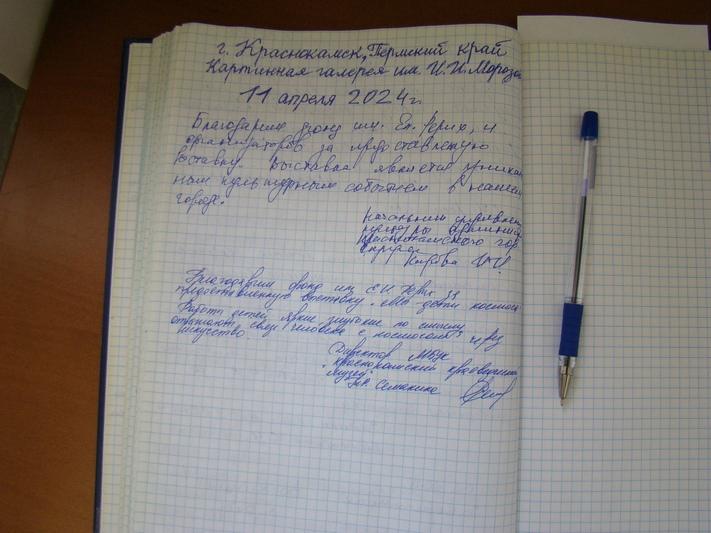 г. Краснокамск, Пермский край
Картинная галерея им. И.И. Морозо
11 апреля 2024 г.
Благодарию фонд им. Ел. Рерих, и
организаторов за предоставленную
выставку. Выставка является уникаль
ным культурным событием в нашем
городе.
начальник управления
культуры админис
Краснокамского гор.
округа
Благодарим фонд им Е.И. Рерих за
предоставленную выставку "Мы дети космоса
Работы детей яркие глубокие по смыслу
отражают связь человека с космосом через
искусство
Директор МБУК
"Краснокамский краеведческий
музей"
Семакина